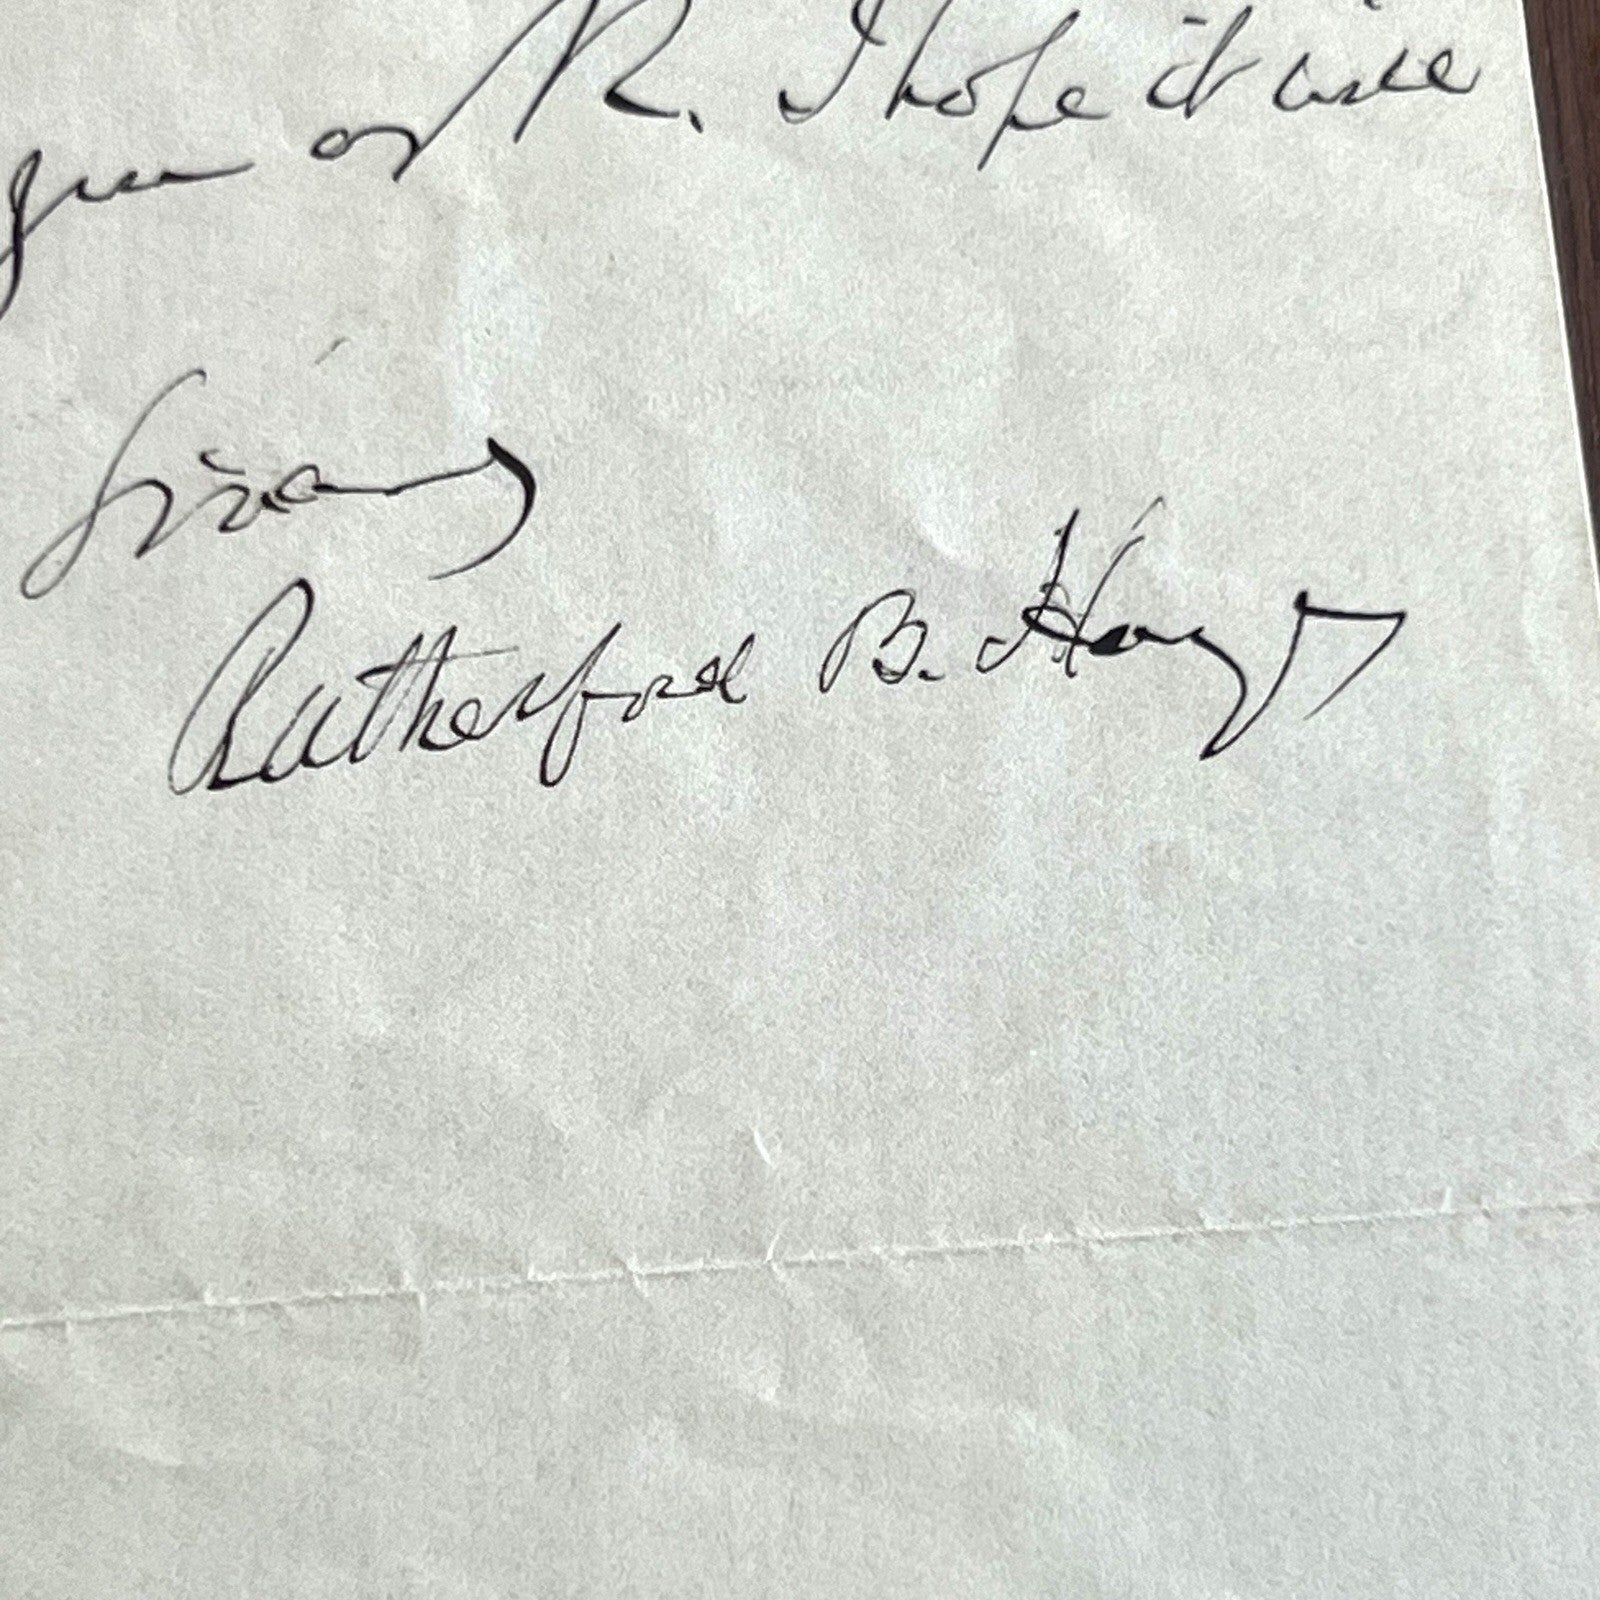 or R. I hope it will
Sincerely
Rutherford B. Hayes